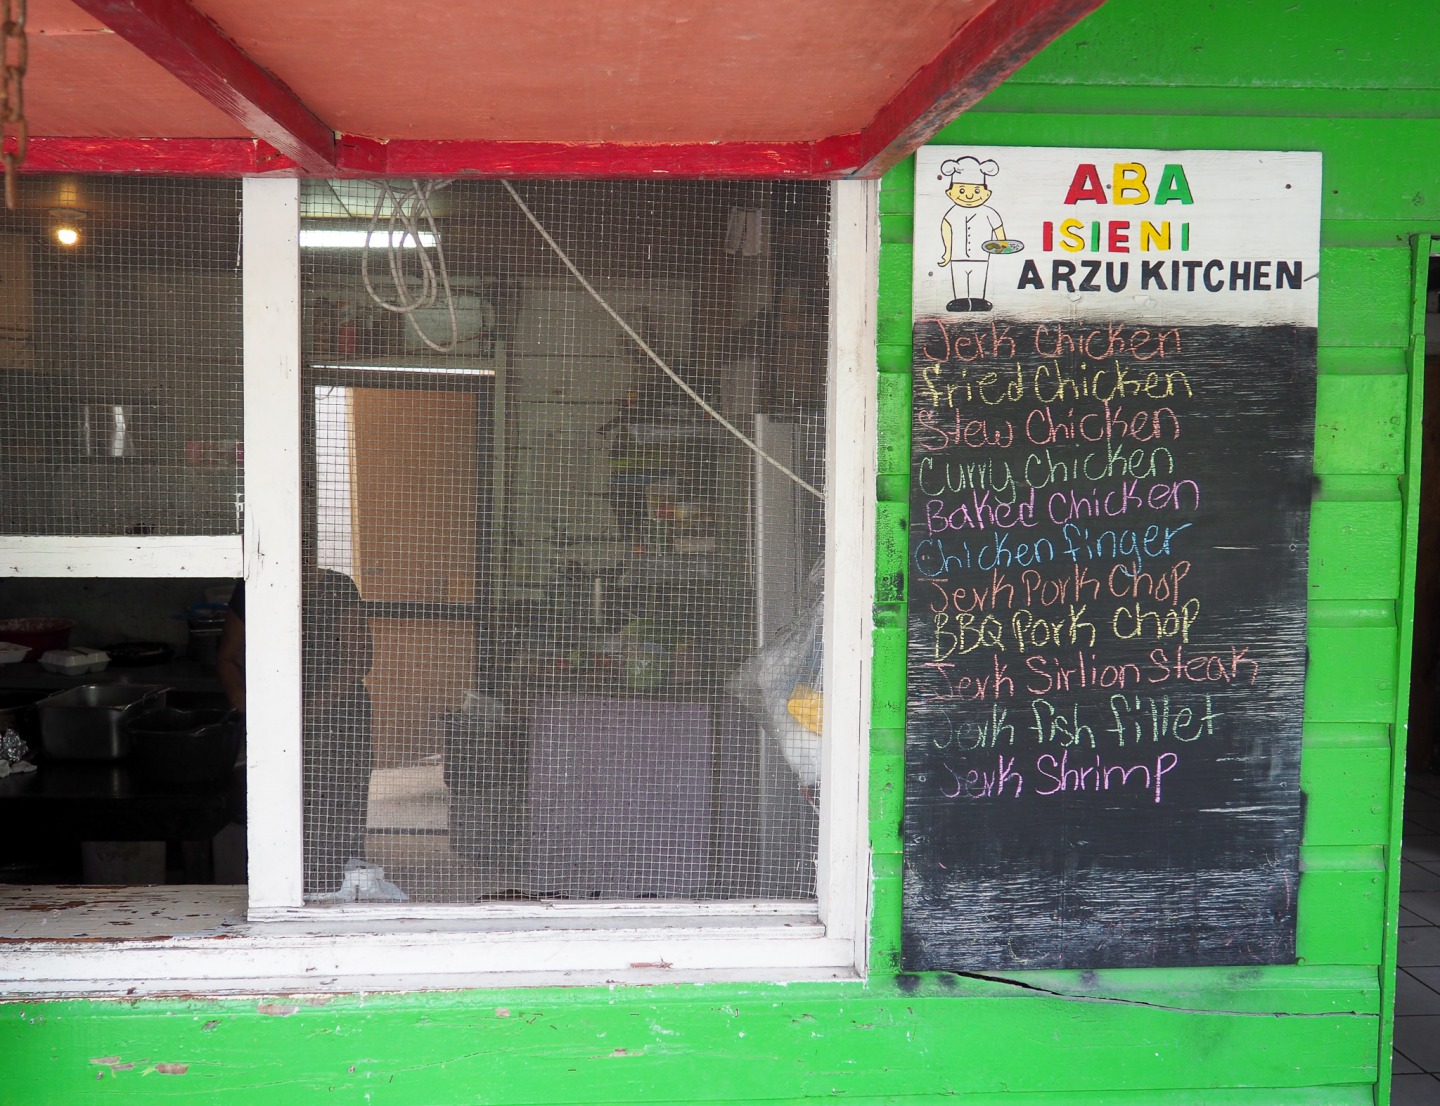 ABA
ISIENI
ARZU KITCHEN
Jerk Chicken
fried Chicken
Stew Chicken
Curry Chicken
Baked Chicken
Chicken finger
Jerk Pork Chop
BBQ Pork Chop
Jerk Sirlion Steak
Jerk fish fillet
Jerk Shrimp